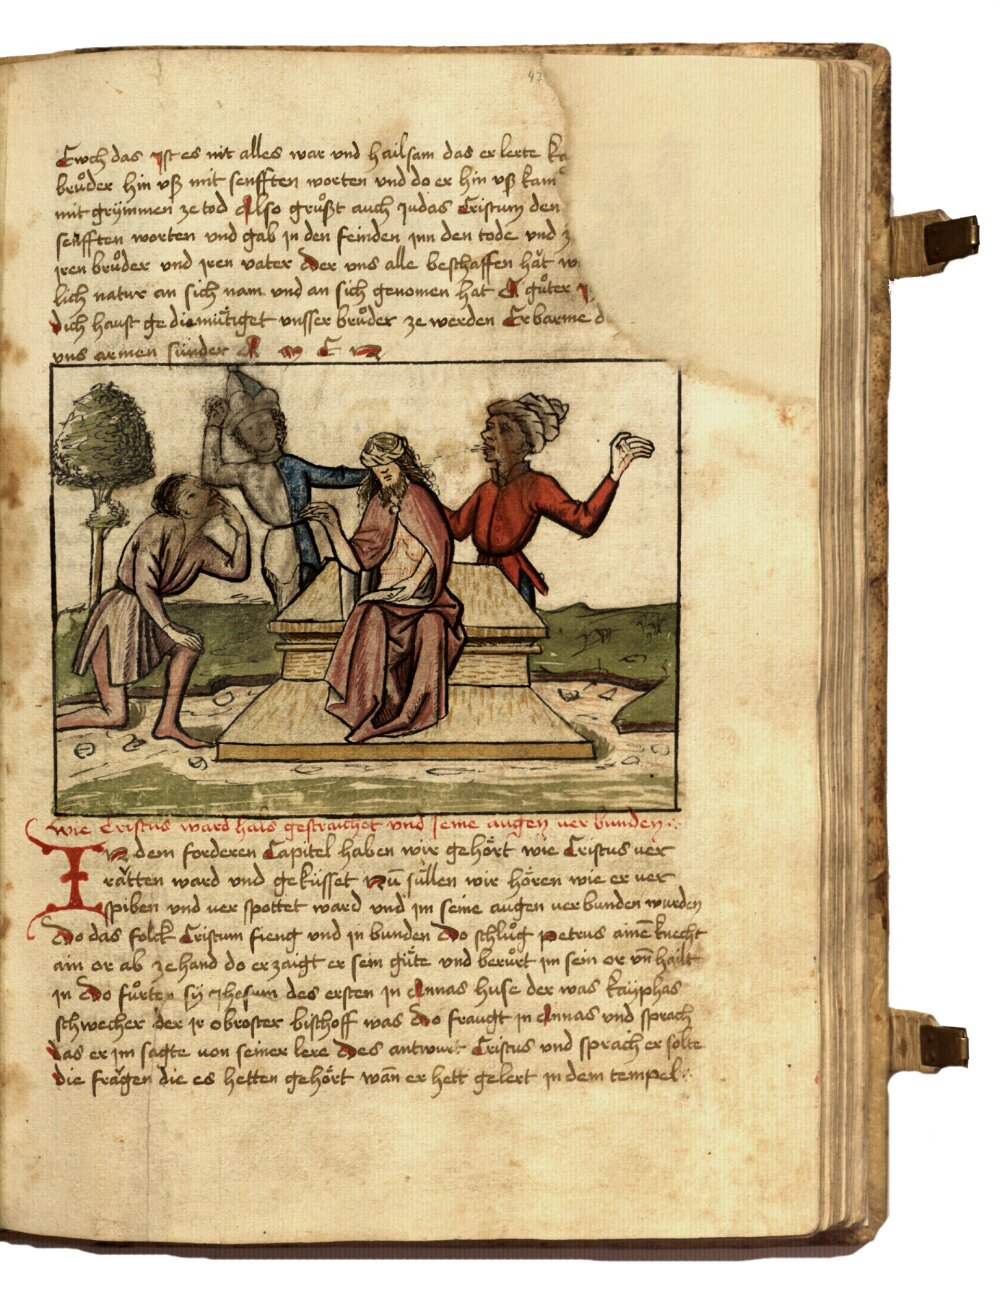 42
Ewch das ist es nit alles war vnd hailsam das er lerte
bruͦder hin vß mit senfften worten vnd do er hin vß kam
mit grymmen ze tod Also gruͤßt auch judas Cristum den
senfften worten vnd gab in den feinden jnn den tode vnd
jren bruͦder vnd jren vater der vns alle beschaffen haͤt
lich natur an sich nam vnd an sich genomen hat A guͦter
dich haust gediemuͤtiget vnsser bruͦder ze werden Erbarme
vns armen suͤnder A m E n
wie Cristus ward hals gestraichet vnd seine augen verbunden
In dem forderen Capitel haben wir gehoͤrt wie Cristus ver
raͤtten ward vnd gekuͤsset Nū suͤllen wir hoͤren wie er ver
spiben vnd ver spottet ward vnd im seine augen verbunden wurden
Do das folck Cristum fieng vnd in bunden Do schluͦg petrus aimē knecht
ain or ab zehand do erzaigt er sein guͤte vnd beruͤrt im sein or vn̄ hailt
in Do fuͦrten sy Jhesum des ersten in Annas huse der was kayphas
schwecher der jr obroster bischoff was Do fraugt in Annas vnd sprach
das er im sagte von seiner lere Des antwurt Cristus vnd sprach er solte
die fraͤgen die es hetten gehoͤrt wan̄ er hett gelert in dem tempel